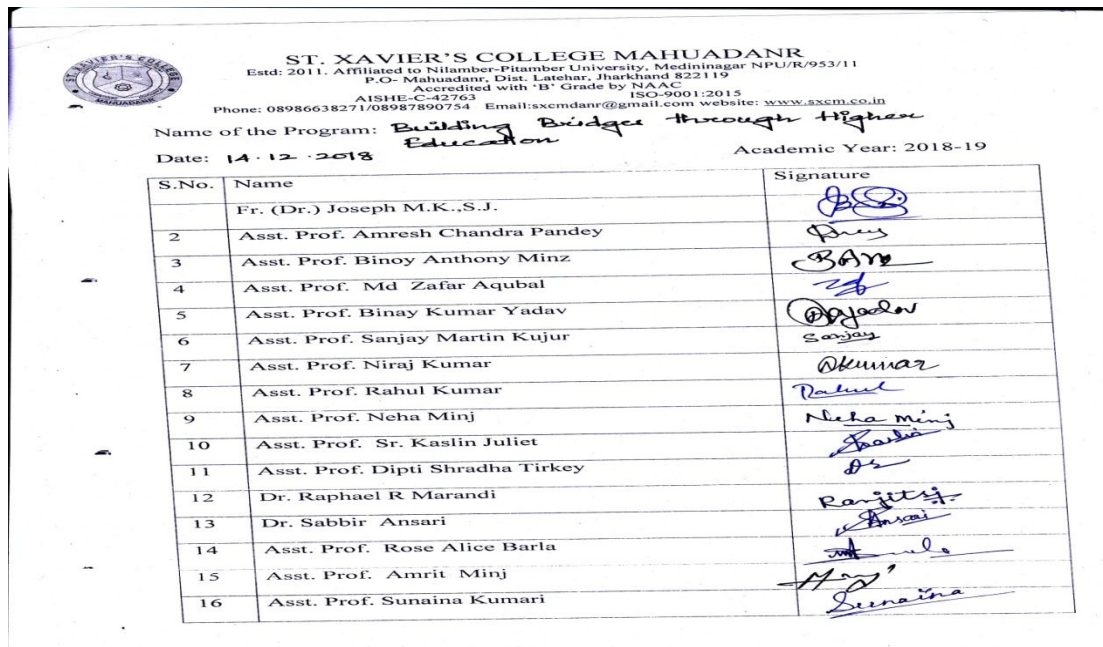 ST. XAVIER'S COLLEGE MAHUADANR
Estd: 2011. Affiliated to Nilamber-Pitamber University, Medininagar NPU/R/953/11
P.O- Mahuadanr, Dist. Latehar, Jharkhand 822119
Accredited with 'B' Grade by NAAC
AISHE-C-42763 ISO-9001:2015
Phone: 08986638271/08987890754 Email:sxcmdanr@gmail.com website: www.sxcm.co.in
ST. XAVIER'S COLLEGE
MAHUADANR
Name of the Program: Building Bridges through Higher
Education
Date: 14.12.2018 Academic Year: 2018-19
S.No. Name Signature
Fr. (Dr.) Joseph M.K.,S.J.
2 Asst. Prof. Amresh Chandra Pandey
3 Asst. Prof. Binoy Anthony Minz
4 Asst. Prof. Md Zafar Aqubal
5 Asst. Prof. Binay Kumar Yadav
6 Asst. Prof. Sanjay Martin Kujur Sanjay
7 Asst. Prof. Niraj Kumar
8 Asst. Prof. Rahul Kumar Rahul
9 Asst. Prof. Neha Minj Neha Minj
10 Asst. Prof. Sr. Kaslin Juliet
11 Asst. Prof. Dipti Shradha Tirkey
12 Dr. Raphael R Marandi Ranjitsj.
13 Dr. Sabbir Ansari Ansari
14 Asst. Prof. Rose Alice Barla
15 Asst. Prof. Amrit Minj
16 Asst. Prof. Sunaina Kumari Sunaina